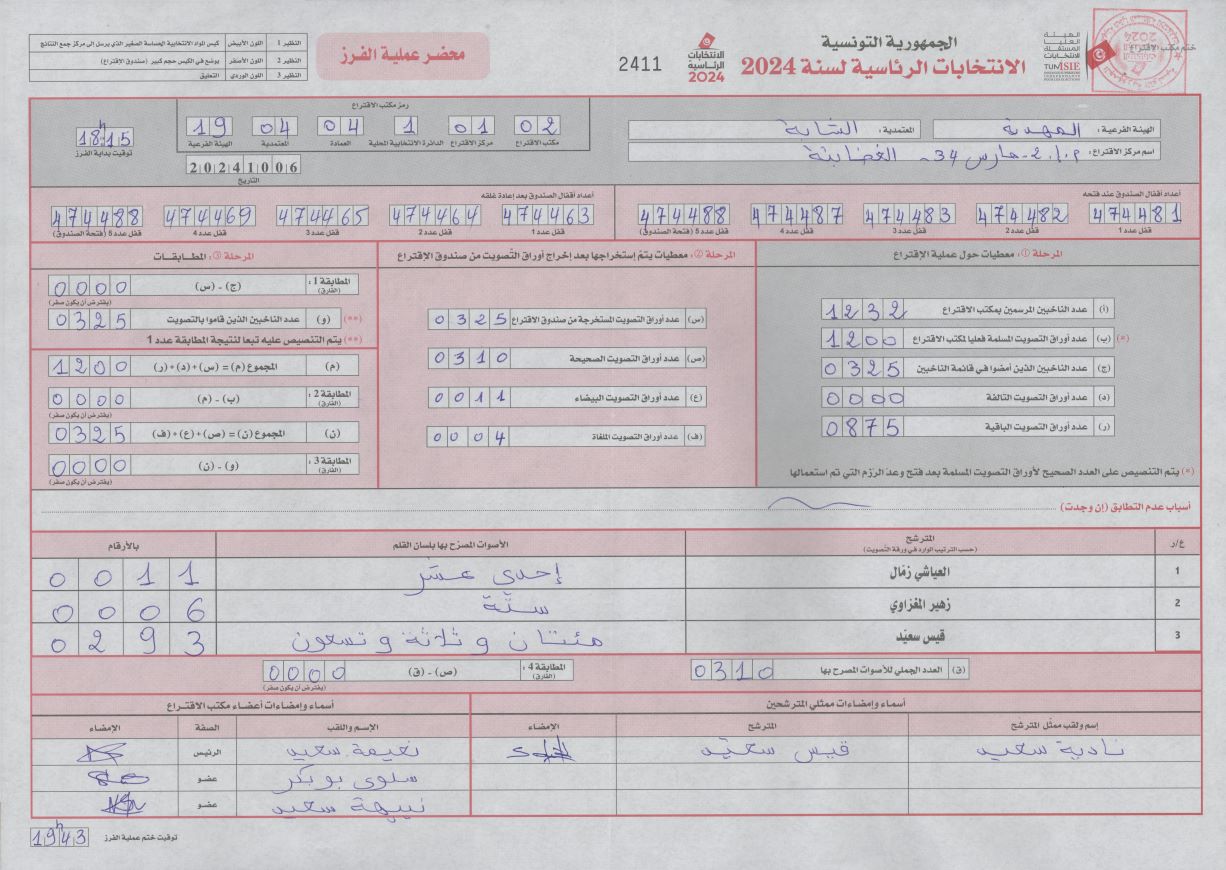 الجمهورية التونسية
الانتخابات الرئاسية لسنة 2024
الهيئة العليا المستقلة للانتخابات
ختم مكتب الاقتراع
الانتخابات الرئاسية 2024
2411
محضر عملية الفرز
النظير 1 اللون الأبيض كيس المواد الانتخابية الحساسة الصغير الذي يرسل إلى مركز جمع النتائج
النظير 2 اللون الأصفر يوضع في الكيس حجم كبير (صندوق الإقتراع)
النظير 3 اللون الوردي التعليق
الهيئة الفرعية : المهدية المعتمدية : الشابة
اسم مركز الاقتراع : م.إ. 2 مارس 34 -
رمز مكتب الاقتراع
02 01 1 04 04 19
مكتب الاقتراع مركز الاقتراع الدائرة الانتخابية المحلية العمادة المعتمدية الهيئة الفرعية
20241006
التاريخ
18h15
توقيت بداية الفرز
أعداد أقفال الصندوق عند فتحه
474481 474482 474483 474487 474488
قفل عدد 1 قفل عدد 2 قفل عدد 3 قفل عدد 4 قفل عدد 5 (فتحة الصندوق)
أعداد أقفال الصندوق بعد إعادة غلقه
474463 474464 474465 474469 474488
قفل عدد 1 قفل عدد 2 قفل عدد 3 قفل عدد 4 قفل عدد 5 (فتحة الصندوق)
المرحلة ①: معطيات حول عملية الإقتراع
(أ) عدد الناخبين المرسمين بمكتب الاقتراع 1232
(*) (ب) عدد أوراق التصويت المسلمة فعليا لمكتب الاقتراع 1200
(ج) عدد الناخبين الذين أمضوا في قائمة الناخبين 0325
(د) عدد أوراق التصويت التالفة 0000
(ر) عدد أوراق التصويت الباقية 0875
(*) يتم التنصيص على العدد الصحيح لأوراق التصويت المسلمة بعد فتح وعد الرزم التي تم استعمالها
المرحلة ②: معطيات يتم إستخراجها بعد إخراج أوراق التصويت من صندوق الإقتراع
(س) عدد أوراق التصويت المستخرجة من صندوق الاقتراع 0325
(ص) عدد أوراق التصويت الصحيحة 0310
(ع) عدد أوراق التصويت البيضاء 0011
(ف) عدد أوراق التصويت الملغاة 0004
المرحلة ③: المطابقات
المطابقة 1 : (الفارق) (ج) - (س) 0000
(يفترض أن يكون صفر)
(**) (و) عدد الناخبين الذين قاموا بالتصويت 0325
(**) يتم التنصيص عليه تبعا لنتيجة المطابقة عدد 1
(م) المجموع (م) = (س) + (د) + (ر) 1200
المطابقة 2 : (الفارق) (ب) - (م) 0000
(يفترض أن يكون صفر)
(ن) المجموع (ن) = (ص) + (ع) + (ف) 0325
المطابقة 3 : (الفارق) (و) - (ن) 0000
(يفترض أن يكون صفر)
أسباب عدم التطابق (إن وجدت)
ع/ر المترشح (حسب الترتيب الوارد في ورقة التصويت) الأصوات المصرح بها بلسان القلم بالأرقام
1 العياشي زمّال إحدى عشر 0011
2 زهير المغزاوي ستّة 0006
3 قيس سعيّد مئتان و ثلاثة و تسعون 0293
(ق) العدد الجملي للأصوات المصرح بها 0310
المطابقة 4 : (الفارق) (ص) - (ق) 0000
(يفترض أن يكون صفر)
أسماء وإمضاءات ممثلي المترشحين
إسم ولقب ممثل المترشح المترشح الإمضاء
نادية سعيد قيس سعيّد
أسماء وإمضاءات أعضاء مكتب الاقتراع
الإسم واللقب الصفة الإمضاء
نعيمة سعيد الرئيس
سلوى بوبكر عضو
نبيهة سعيد عضو
توقيت ختم عملية الفرز 19h43